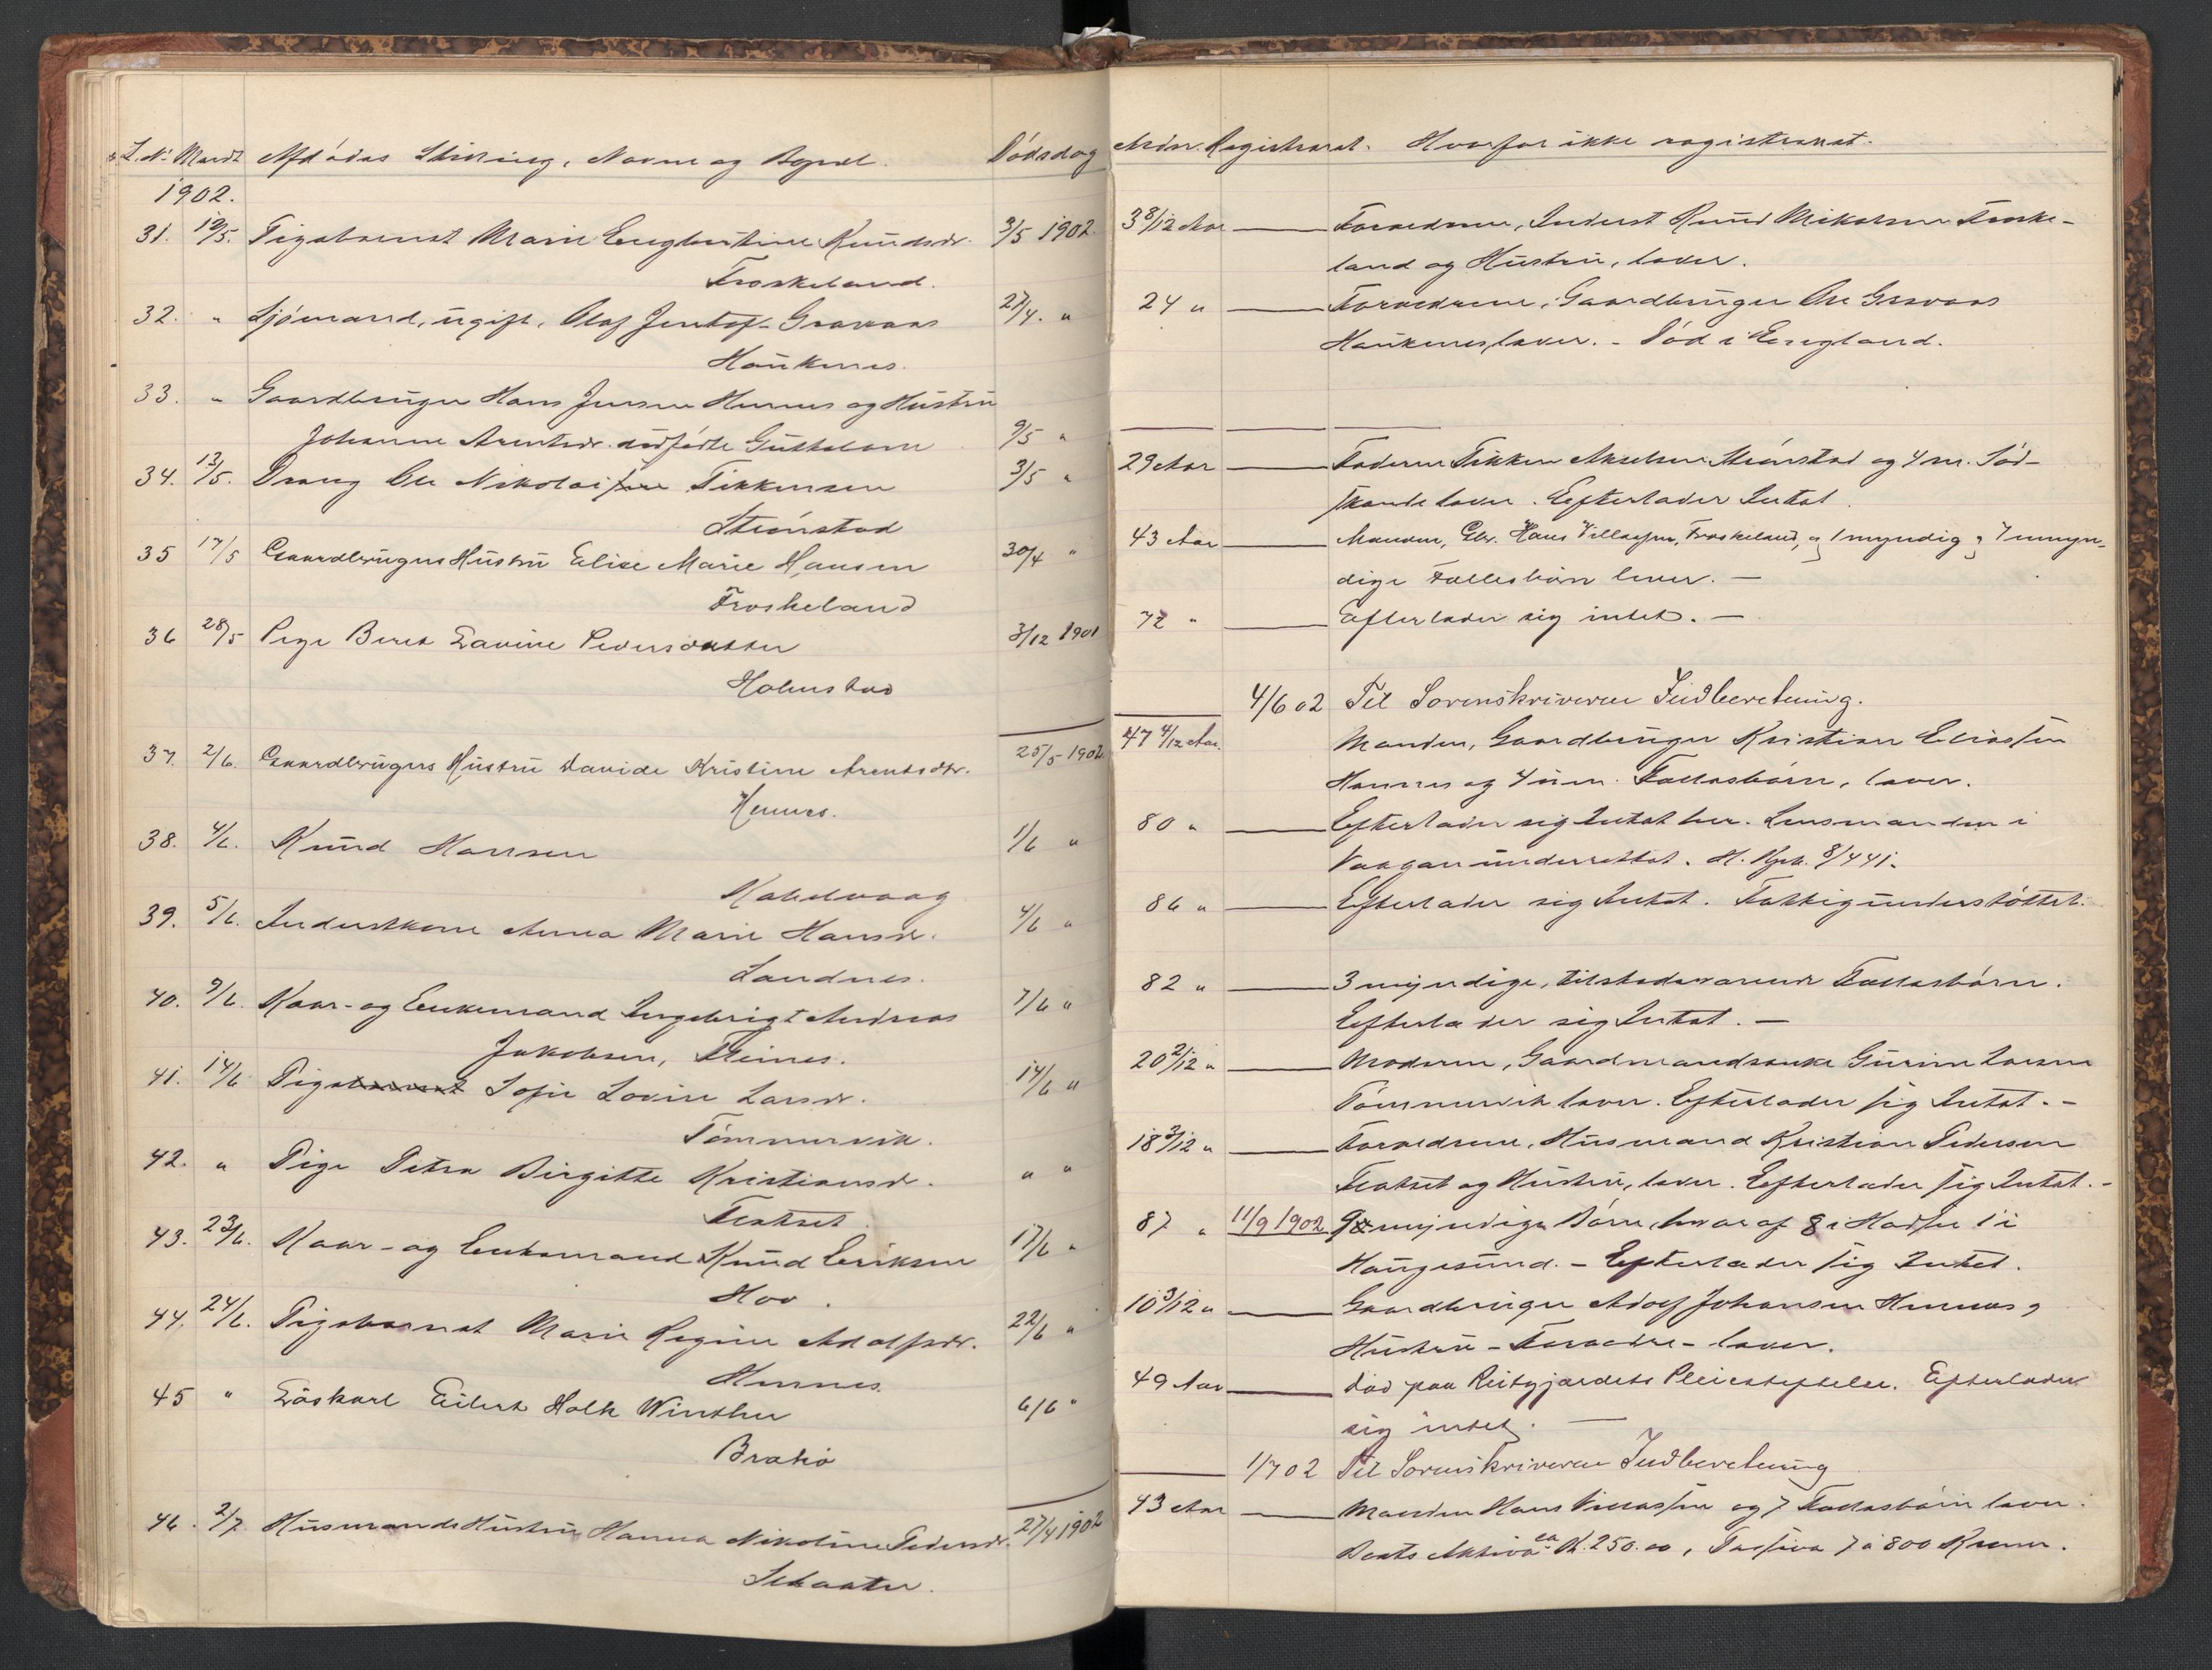 L.N. Meldt Afdødes Stilling, Navne og Bopæl. Dødsdag
1902.
31. 12/5. Pigebarnet Marie Engbertine Knudsdr. 3/5 1902.
Froskeland.
32. " Sjømand, ugift, Olaf Jentoft Graxaas 27/4. "
Haukenes.
33. " Gaardbruger Hans Jensen Hennes og Hustru
Johanne Arentsdr. dødfødte Guttebarn 9/5 "
34. 13/5. Dreng Ole Nikolai Tikkensen 3/5 "
Strønstad
35 17/5 Gaardbrugers Hustru Elise Marie Hansen 30/4 "
Froskeland
36 28/5 Pige Beret Lavine Pedersdatter 3/12 1901
Holmstad
37. 2/6. Gaardbrugers Hustru Davide Kristine Arentsdtr. 25/5 1902
Hennes.
38. 4/6. Knud Hansen 1/6 "
Kabelvaag
39. 5/6. Inderstkone Anna Marie Hansdr. 4/6 "
Sandnes.
40. 9/6. Kaar- og Enkemand Ingebrigt Andreas 7/6 "
Jakobsen, Steines.
41. 14/6 Pigebarnet Sofie Lovise Larsdr. 14/6 "
Tømmervik.
42. " Pige Petra Birgitte Kristiansdr. " "
Flatset
43. 23/6. Kaar- og Enkemand Knud Eriksen 17/6 "
Hov.
44. 24/6. Pigebarnet Marie Regine Adolfsdr. 22/6 "
Hennes.
45 " Løskarl Eilert Holk Winther 6/6 "
Bratiø
46. 2/7. Husmands Hustru Hanna Nikoline Pedersdr. 27/4 1902
Alder. Registreret. Hvorfor ikke registreret.
3 8/12 Aar Forældrene, Inderst Knud Mikalsen Froske-
land og Hustru, lever.
24 " Forældrene, Gaardbruger Ole Graxaas
Haukenes lever. - Død i England.
29 Aar Faderen Tikken Akselsen Strønstad og 4 m. Sød-
skende lever. Efterlader Intet.
43 Aar Manden, Gbr. Hans Villassen, Froskeland, og 1 myndig og 7 umyn-
dige Fællesbørn lever. -
72 " Efterlader sig intet. -
4/6 02 Til Sorenskriveren Indberetning.
47 4/12 Aar. Manden, Gaardbruger Kristian Eliassen
Hennes og 4 um. Fællesbørn, lever.
80 " Efterlader sig Intet her. Lensmanden i
Vaagan underrettet. H. Kpb. 8/441.
86 " Efterlader sig Intet. Fattigunderstøttet.
82 " 3 myndige, tilstedeværende Fællesbørn.
Efterlader sig Intet. -
20 2/12 " Moderen, Gaardmandsenke Gurine Larsen
Tømmervik lever. Efterlader sig Intet. -
18 3/12 " Forældrene, Husmand Kristian Pedersen
Flatset og Hustru, lever. Efterlader sig Intet. -
87 " 11/9 1902 9 myndige Børn, hvoraf 8 i Hadsel 1 i
Haugesund. - Efterlader sig Intet.
10 3/12 " Gaardbruger Adolf Johansen Hennes og
Hustru - Forældre - lever.
49 Aar Død paa Reitgjærdets Pleiestiftelse. Efterlader
sig intet. -
1/7 02 Til Sorenskriveren Indberetning
43 Aar Manden Hans Villassen og 7 Fællesbørn lever.
Boets Aktiva ca K. 250.00, Passiva 7 à 800 Kroner.